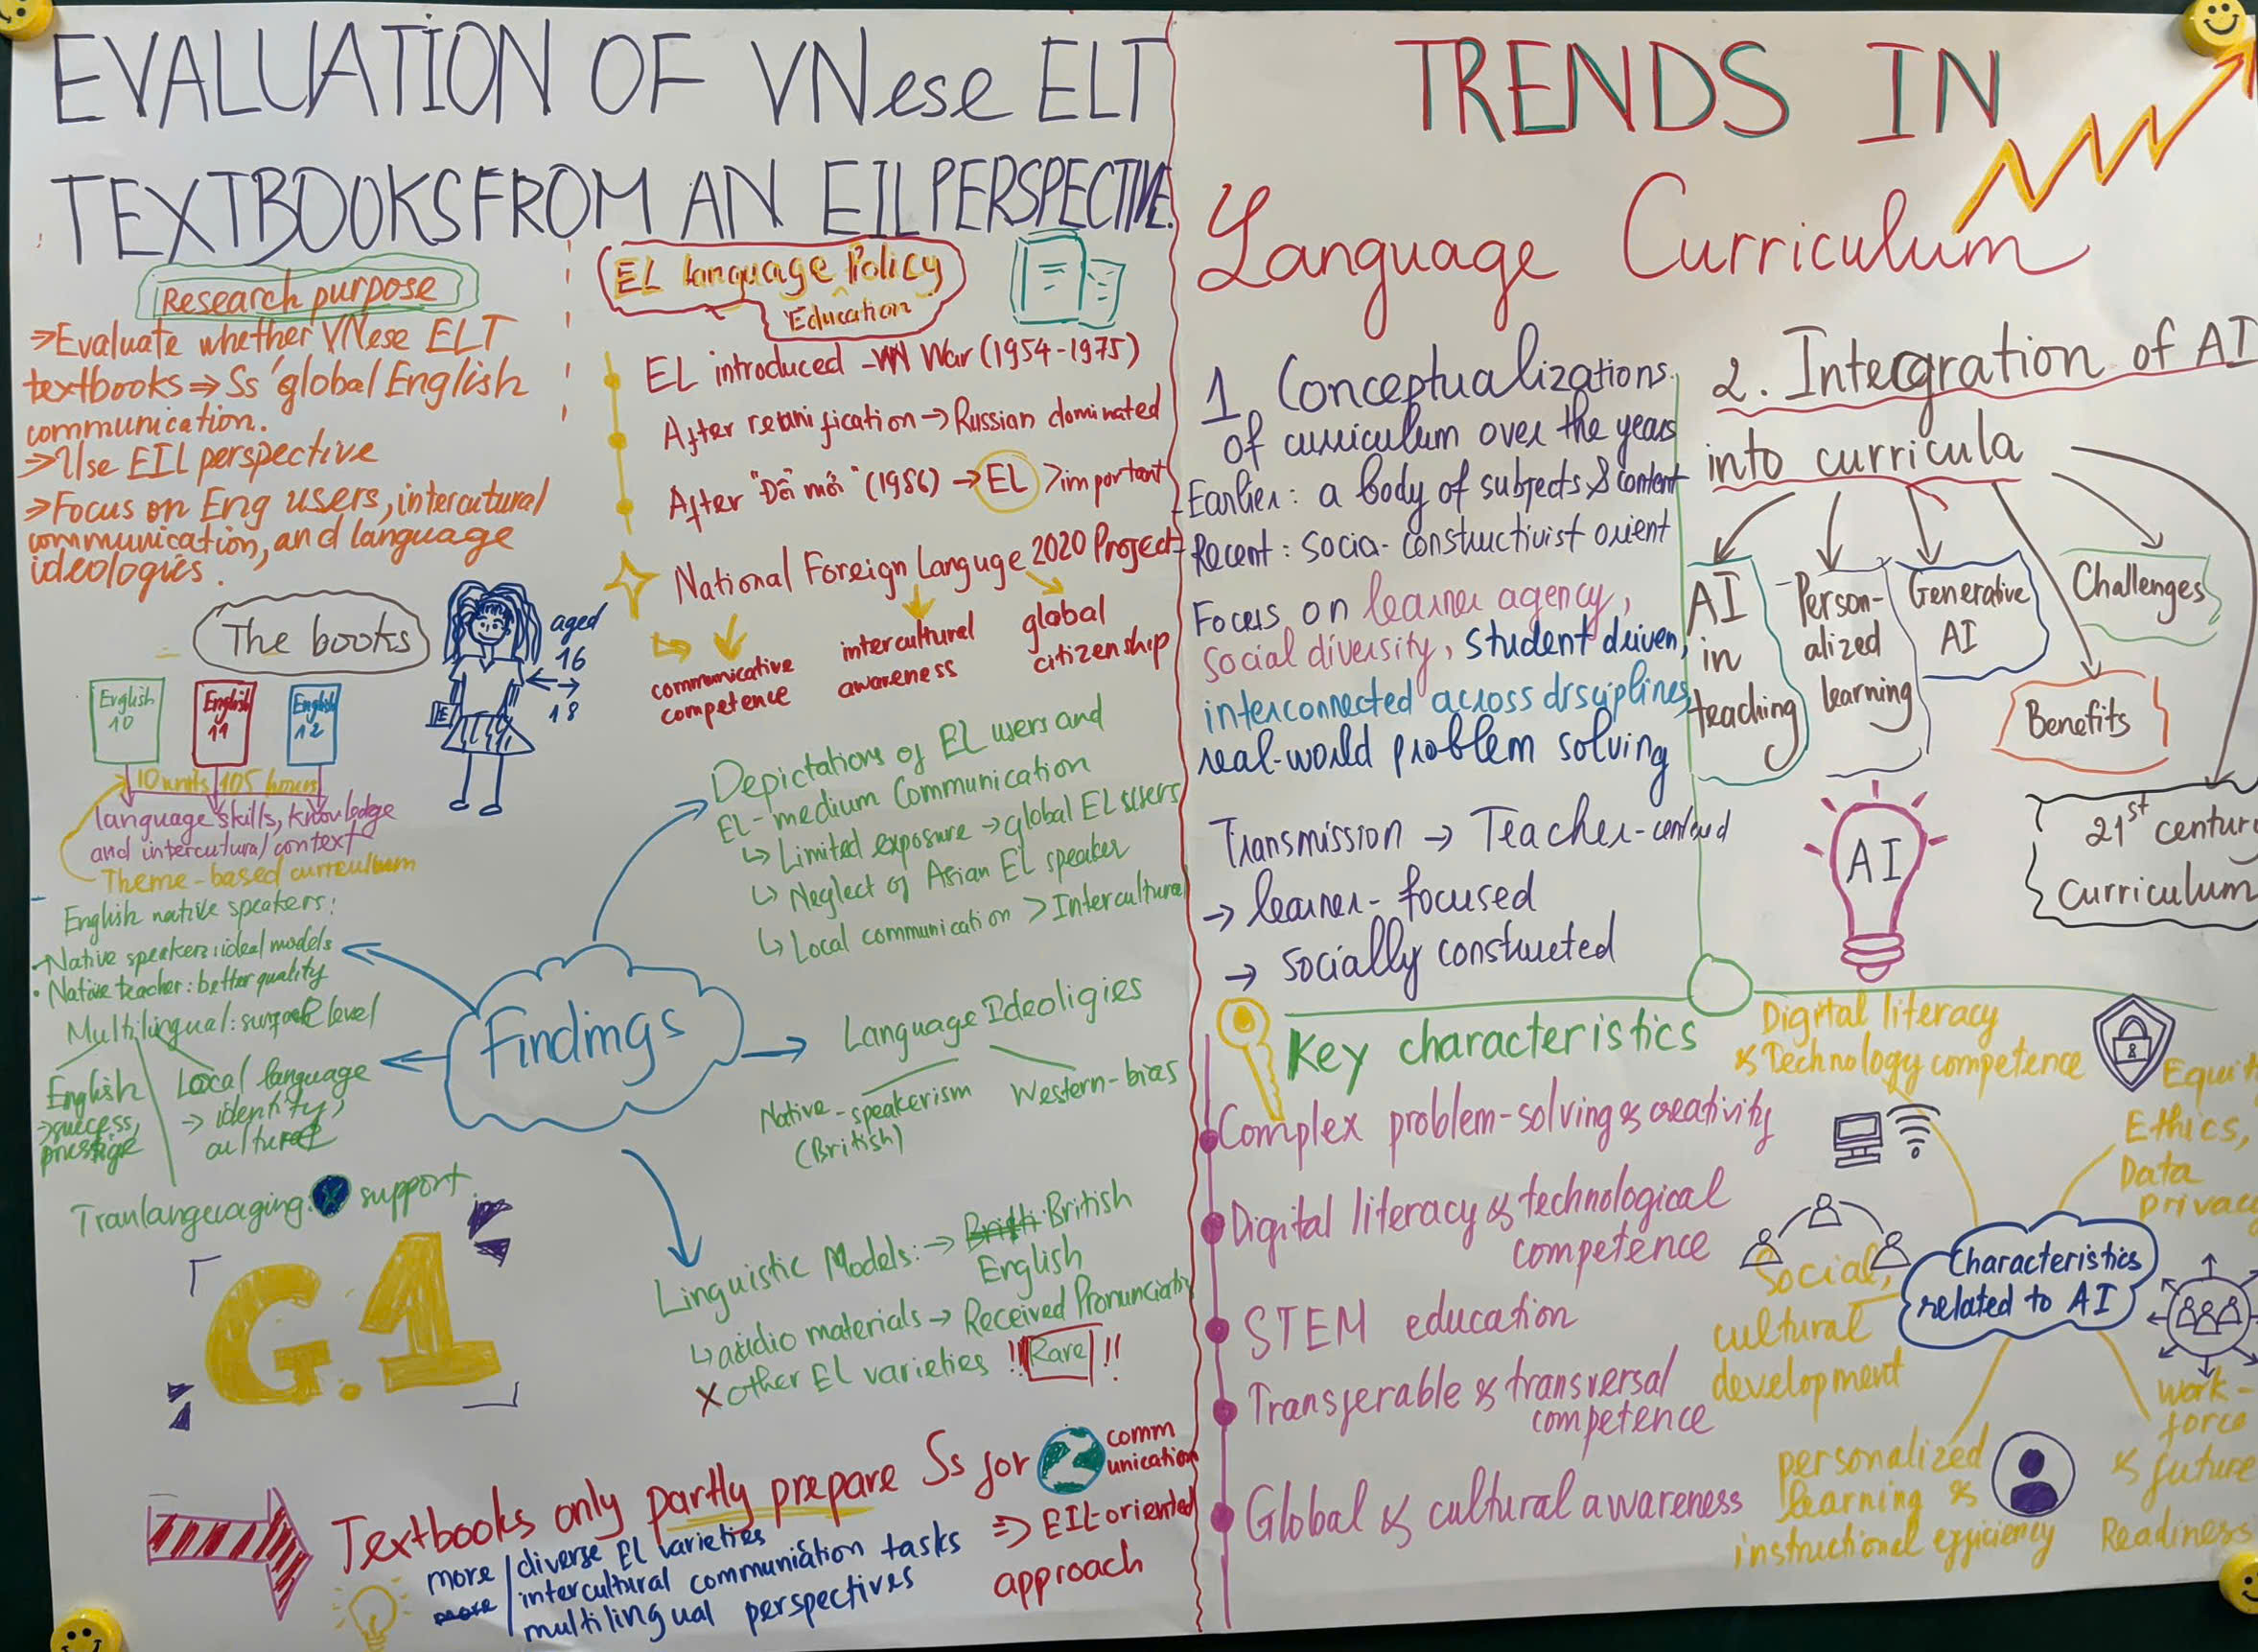 EVALUATION OF VNese ELT
TEXTBOOKS FROM AN EIL PERSPECTIVE.
Research purpose
⇒Evaluate whether VNese ELT
textbooks ⇒ Ss' global English
communication.
⇒Use EIL perspective
⇒Focus on Eng users, intercutural
communication, and language
ideologies.
The books
aged
16
18
English
10
English
11
English
12
10 units 105 hours
language skills, knowledge
and intercutural context
Theme-based curriculum
EL language Policy
Education
EL introduced - VN War (1954-1975)
After reunification → Russian dominated
After "Đổi mới" (1986) → EL > important
National Foreign Languge 2020 Project
communicative
competence
intercultural
awareness
global
citizenship
Findings
Depictations of EL users and
EL-medium Communication
↳ Limited exposure → global EL users
↳ Neglect of Asian EL speaker
↳ Local communication > Intercultural
English native speakers:
• Native speakers: ideal models
• Native teacher: better quality
Multilingual: surface level
English
→ success,
prestige
Local language
→ identity,
culture
Tranlanguaging: X support
Language Ideoligies
Native-speakerism
(British)
Western-bias
Linguistic Models: → British
English
↳ audio materials → Received Pronunciation
X other EL varieties !! Rare !!
G.1
Textbooks only partly prepare Ss for
comm
unication
⇒ EIL-oriented
approach
more
more
diverse EL varieties
intercultural communiation tasks
multilingual perspectives
TRENDS IN
Language Curriculum
1. Conceptualizations
of curriculum over the years
- Earlier: a body of subjects & content
- Recent: socia-constuctivist orient
Focus on learner agency,
social diversity, student driven,
interconnected across disciplines,
real-world problem solving
Transmission → Teacher-centered
→ learner-focused
→ socially constucted
2. Integration of AI
into curricula
AI
in
teaching
Person-
alized
learning
Generative
AI
Challenges
Benefits
21st century
curriculum
AI
Key characteristics
Complex problem-solving & creativity
Digital literacy & technological
competence
STEM education
Transferable & transversal
competence
Global & cultural awareness
Characteristics
related to AI
Digital literacy
& Technology competence
Ethics,
Data
privacy
Social,
cultural
development
personalized
learning &
instructional efficiency
work-
force
& future
Readiness